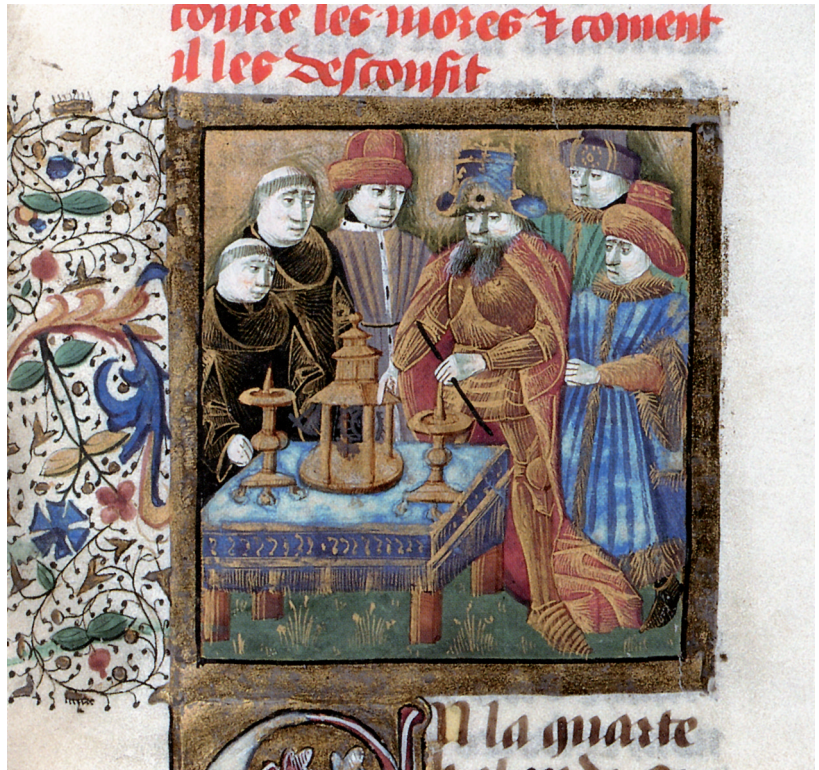 contre les mores ⁊ coment
il les desconfit
En la quarte